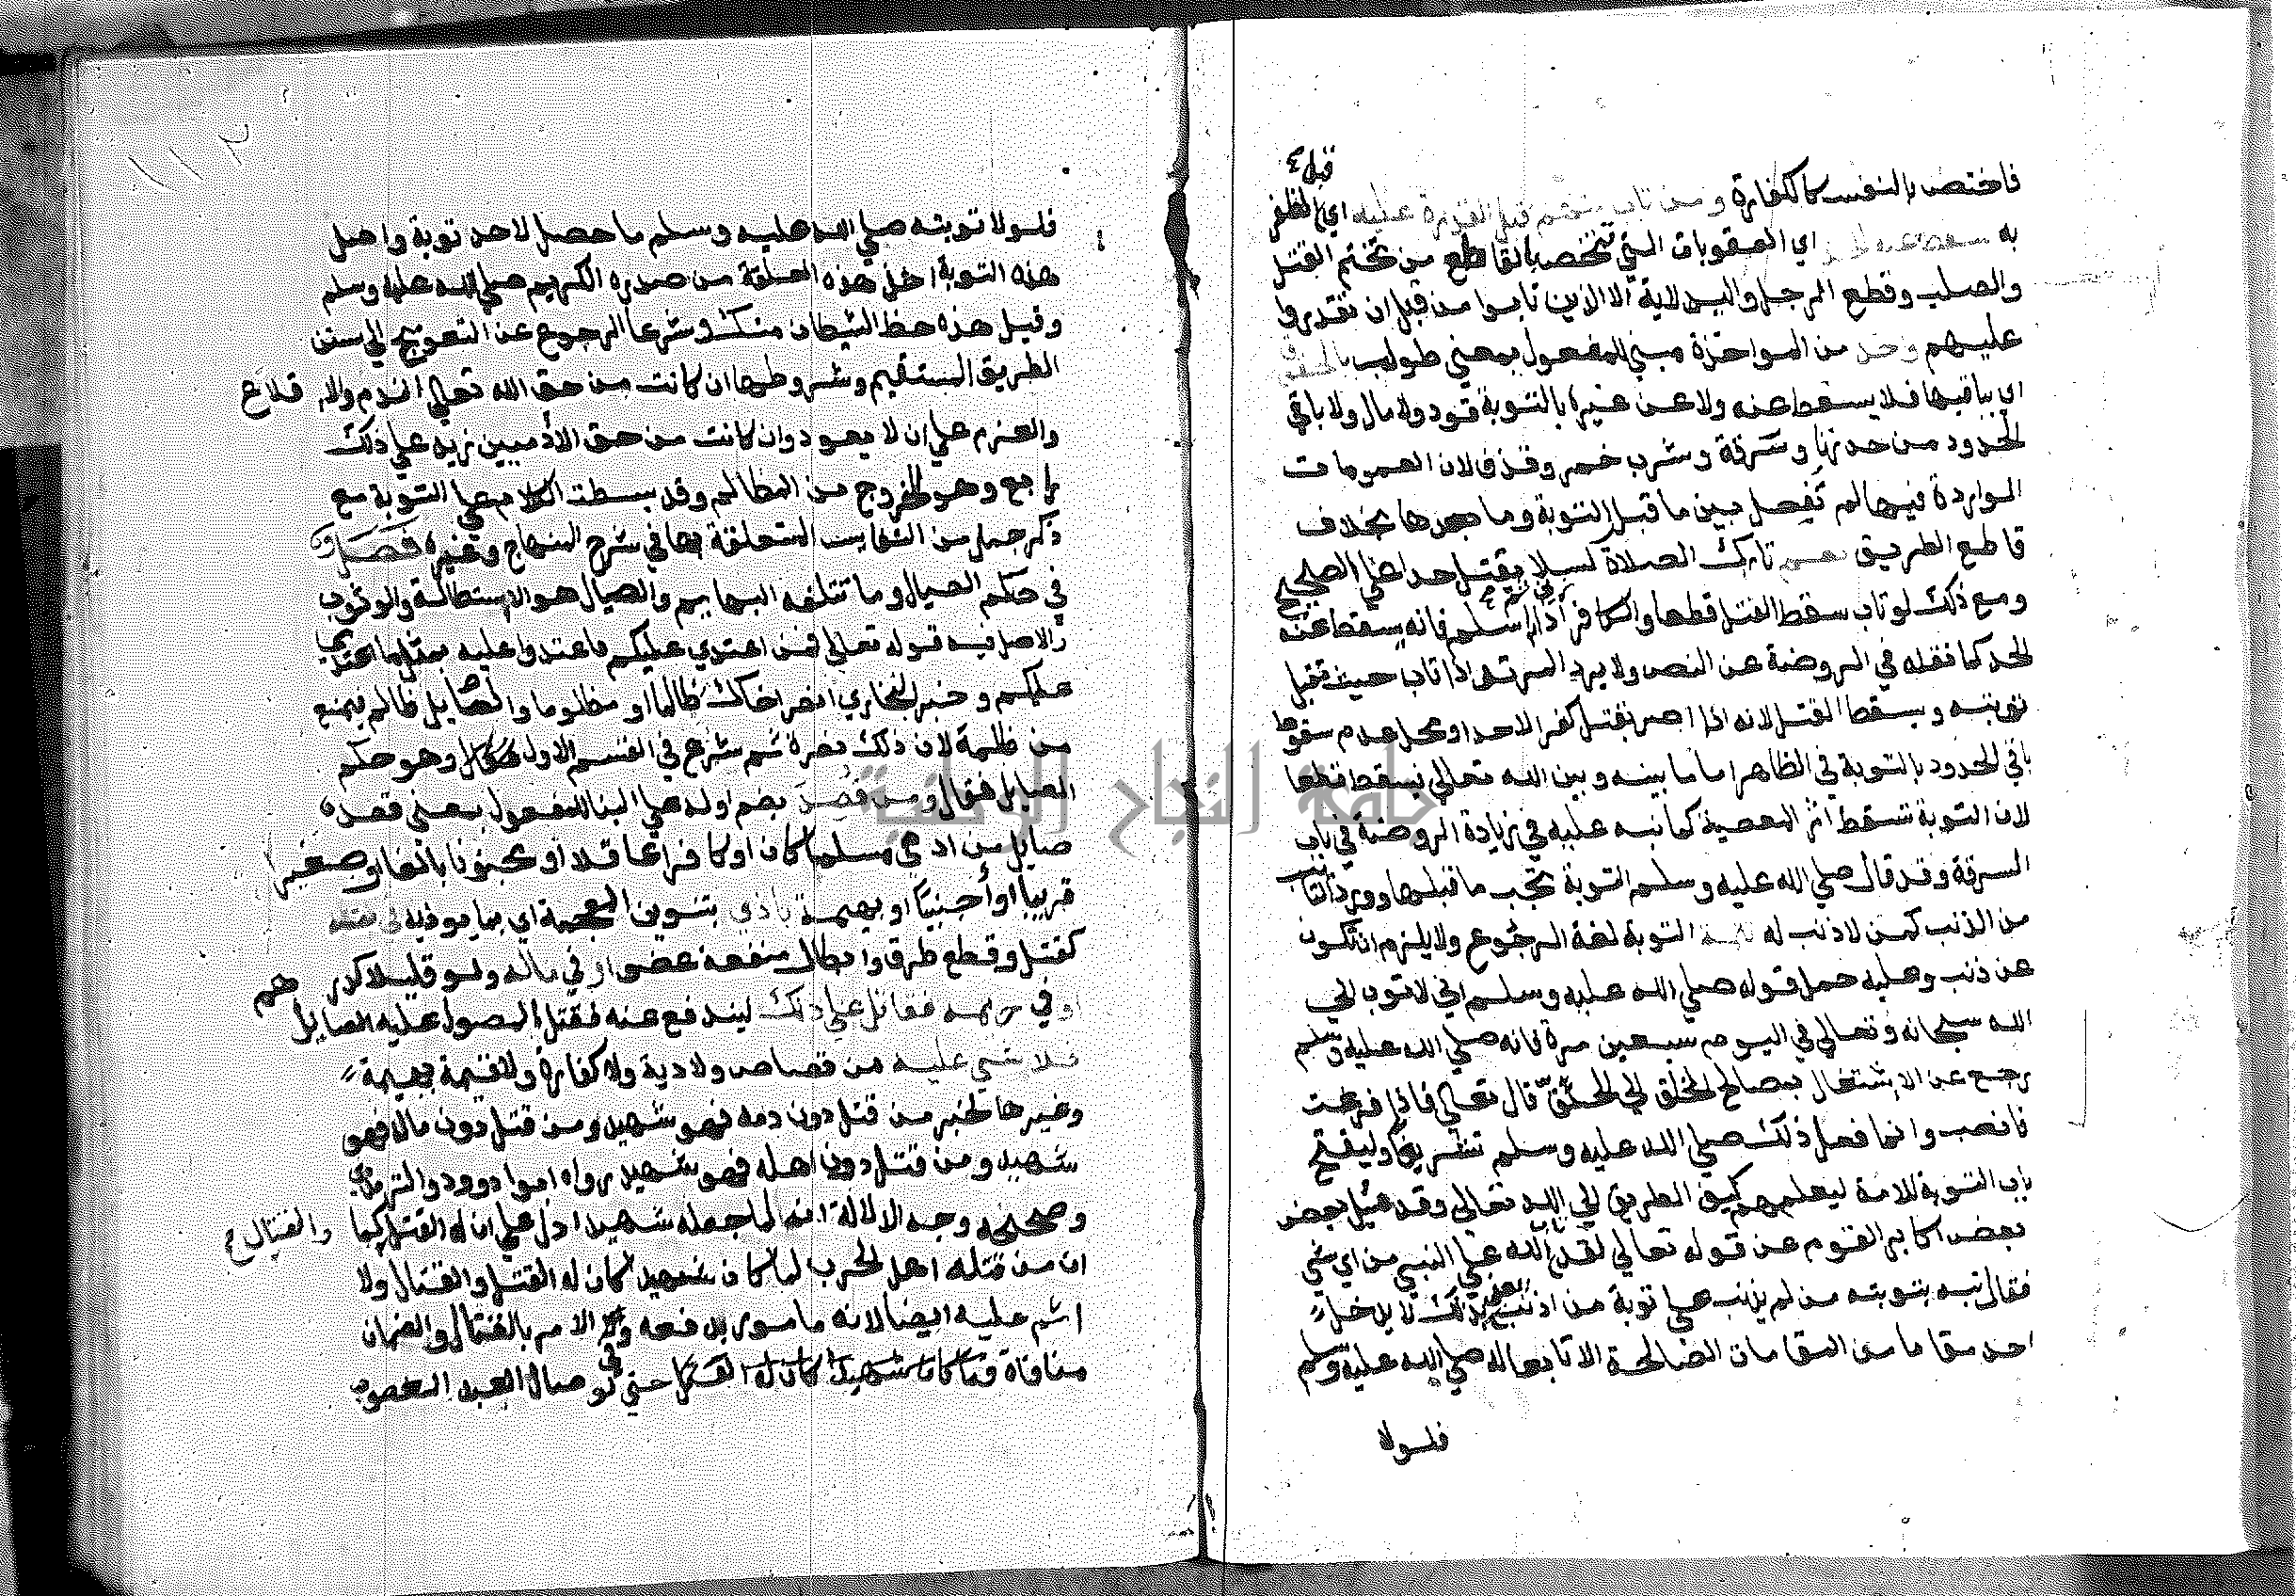 قبل
فاختص بالنفس كالكفارة ومن تاب منهم قبل القدرة عليه اي الظفر
به سقط عنه اي العقوبات التي تختص بالقاطع من تحتم القتل
والصلب وقطع الرجل واليد لاية الا الذين تابوا من قبل ان تقدروا
عليهم من المواخذة مبني للمفعول بمعني طولب بالحقوق
اي بباقيها فلا يسقط عنه ولا عن غيره بالتوبة قود ولا مال ولا باقي
الحدود من حد زنا وسرقة وشرب خمر وقذف لان العمومات
الواردة فيها لم تفصل بين ما قبل التوبة وما بعدها بخلاف
قاطع الطريق تارك الصلاة كسلا يقتل حدا علي الصحيح
ومع ذلك لو تاب سقط القتل قطعا والكافر اذا اسلم فانه يسقط عنه
الحد كما نقله في الروضة عن النص ولا يرد المرتد اذا تاب حيث تقبل
توبته ويسقط القتل لانه اذا اصر يقتل كفرا لا حدا ومحل عدم سقوط
باقي الحدود بالتوبة في الظاهر اما ما بينه وبين الله تعالي فيسقط قطعا
لان التوبة تسقط اثر المعصية كما نبه عليه في زيادة الروضة في باب
السرقة وقد قال صلي الله عليه وسلم التوبة تجب ما قبلها وورد التائب
من الذنب كمن لا ذنب له التوبة لغة الرجوع ولا يلزم ان تكون
عن ذنب وعليه حمل قوله صلي الله عليه وسلم اني لاتوب الي
الله سبحانه وتعالي في اليوم سبعين مرة فانه صلي الله عليه وسلم
رجع عن الاشتغال بمصالح الخلق الي الحق قال تعالي فاذا فرغت
فانصب وانما فعل ذلك صلي الله عليه وسلم تشريعا وليفتح
باب التوبة للامة ليعلمهم كيف الطريق الي الله تعالي وقد سئل بعض
بعض اكابر القوم عن قوله تعالي لقد تاب الله علي النبي من اي شي
فقال نبه بتوبته من لم يذنب علي توبة من اذنب يعني بذلك لا يدخل
احد مقاما من المقامات الصالحة الا تابعا له صلي الله عليه وسلم
فلولا
فلولا توبته صلي الله عليه وسلم ما حصل لاحد توبة واصل
هذه التوبة اخذ هذه العلقة من صدره الكريم صلي الله عليه وسلم
وقيل هذه حظ الشيطان منك وشرعا الرجوع عن التعويج الي سنن
الطريق المستقيم وشروطها ان كانت من حق الله تعالي الندم والاقلاع
والعزم علي ان لا يعود وان كانت من حق الادميين زيد علي ذلك
رابع وهو الخروج من المظالم وقد بسطت الكلام علي التوبة مع
ذكر جمل من النفايس المتعلقة بها في شرح المنهاج وغيره فصل
في حكم الصيال وما تتلفه البهايم والصيال هو الاستطالة والوثوب
والاصل فيه قوله تعالي فمن اعتدي عليكم فاعتدوا عليه بمثل ما اعتدي
عليكم وخبر البخاري انصر اخاك ظالما او مظلوما والصايل ظالم يمنع
من ظلمه لان ذلك نصرة ثم شرع في القسم الاول وهو حكم
الصايل فقال ومن قصد بضم اوله علي البنا للمفعول بمعني قصده
صايل من ادمي مسلما كان او كافرا عاقلا او مجنونا بالغا او صغيرا
قريبا او أجنبيا او بهيمة باذي بتنوين المعجمة اي بما يوذيه في نفسه
كقتل وقطع طرف وابطال منفعة عضو او في ماله ولو قليلا كدرهم
او في حريمه فقاتل علي ذلك ليندفع عنه فقتل المصول عليه الصايل
فلا شي عليه من قصاص ولا دية ولا كفارة ولا قيمة بهيمة
وغيرها لخبر من قتل دون دمه فهو شهيد ومن قتل دون ماله فهو
شهيد ومن قتل دون اهله فهو شهيد رواه ابوا داوود والترمذي
وصححه وجه الدلالة انه لما جعله شهيدا دل علي ان له القتل والقتال كما
ان من قتله اهل الحرب لما كان شهيدا كان له القتل والقتال ولا
اثم عليه ايضا لانه مامور بدفعه وفي الامر بالقتال والضمان
منافاة حتي لو صال العبد المغصوب